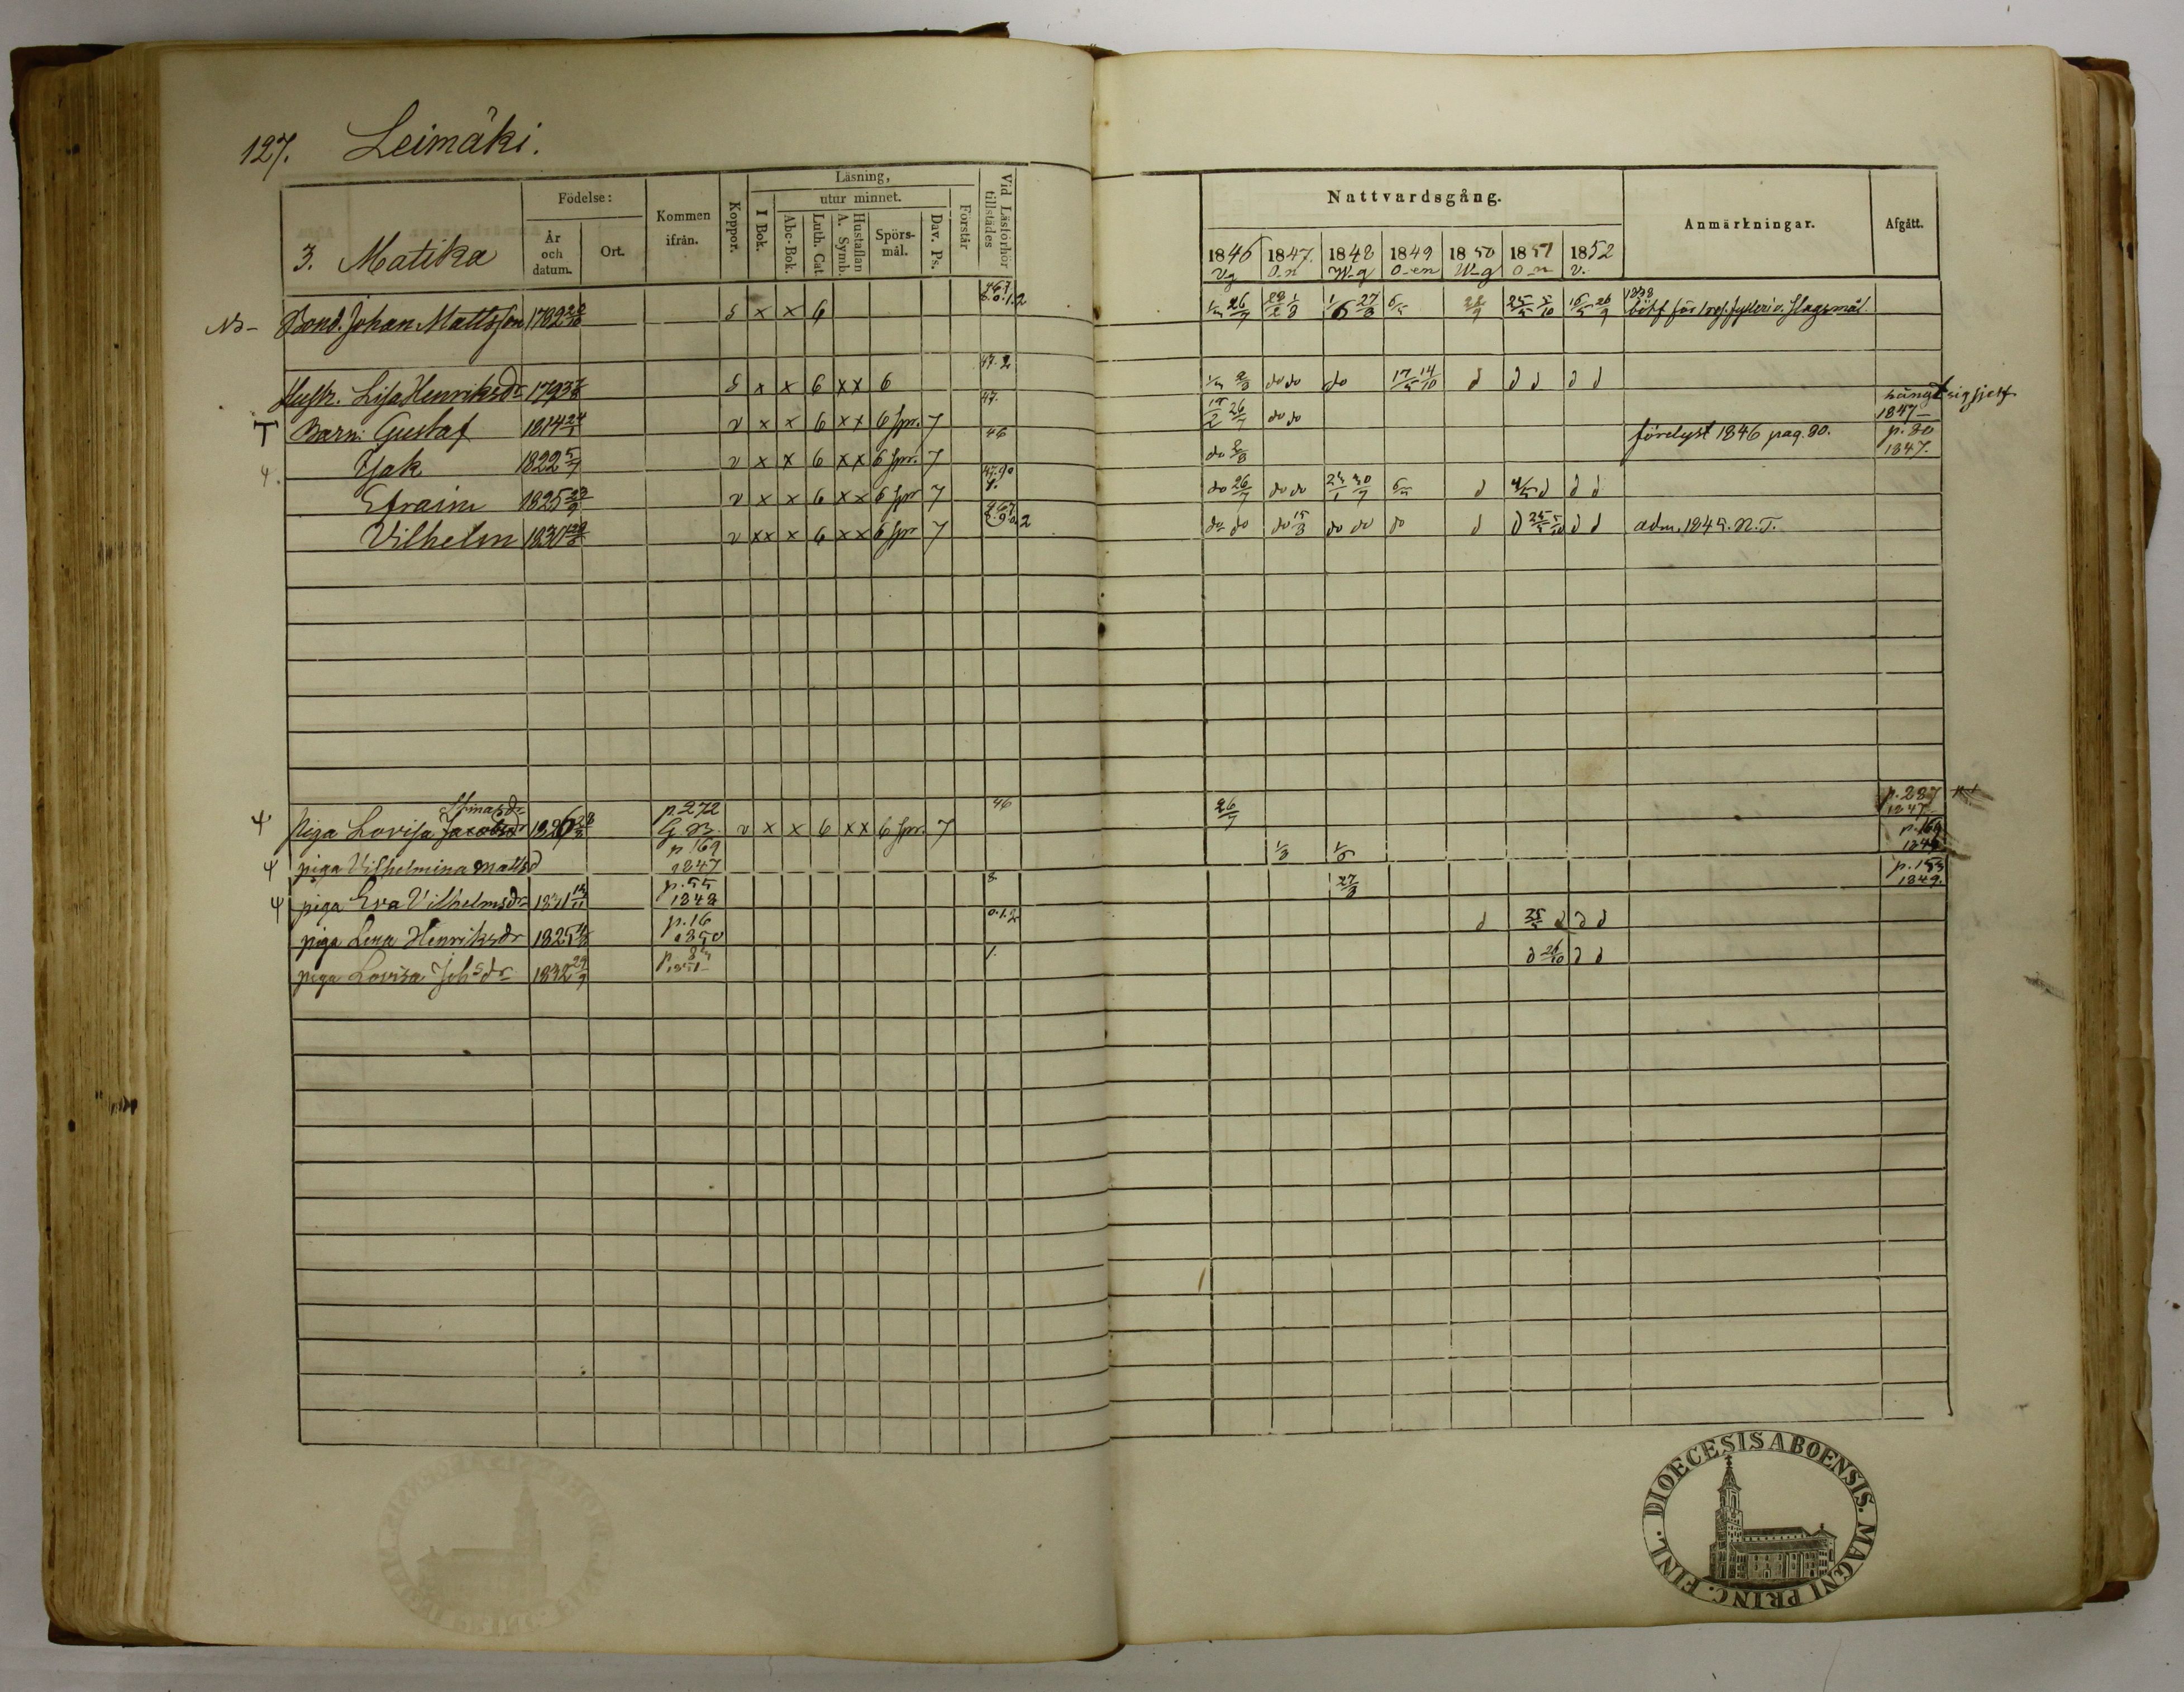 127. Leimäki.
3. Matika
Födelse:
År och datum.
Ort.
Kommen ifrån.
Koppor.
Läsning,
utur minnet.
I Bok.
Abc-Bok.
Luth. Cat.
Hustaflan A. Symb.
Spörs-mål.
Dav. Ps.
Förstår
Vid Läsförhör tillstädes
Nattvardsgång.
1846 1847. 1848 1849 1850 1851 1852
Anmärkningar.
Afgått.
Bond. Johan Mattsson 1782 x x 6
böt för 1 res. fylleri o. slagsmål.
Hustr. Lisa Henriksdr 1793 x x 6 x x 6 47.2 do do do 17/5 14/10 d d d d d
T Barn: Gustaf 1814 24/1 v x x 6 x x 6 spr. 7 47. 26/7 do do hängt sig sjelf 1847
Isak 1822 5/7 v x x 6 x x 6 spr. 7 46 do förelyst 1846 pag. 80. p. 80 1847.
Efraim 1825 23/9 v x x 6 x x 6 spr 7 do 26/7 do do d d d d
Vilhelm 1830 v x x x 6 x x 6 spr 7 do do do do do do d d d d adm. 1845. N. T.
Piga Lovisa Jacobsdr Stinasdr 1826 p. 272 G. B. v x x 6 x x 6 spr. 7 46 26/7 p. 287 1847
piga Vilhelmina Mattsd p 169 1847 p. 169
piga Eva Vilhelmsdr p. 55 1848 8. 27/8 p. 153 1849.
piga Lena Henriksdr 1825 p. 16 1850 0.1.2 d 25/5 d d d
piga Lovisa Johsdr 1832 29/9 1851 1. d 26/10 d d
DIOECESIS ABOENSIS. MAGNI PRINC. FINL.